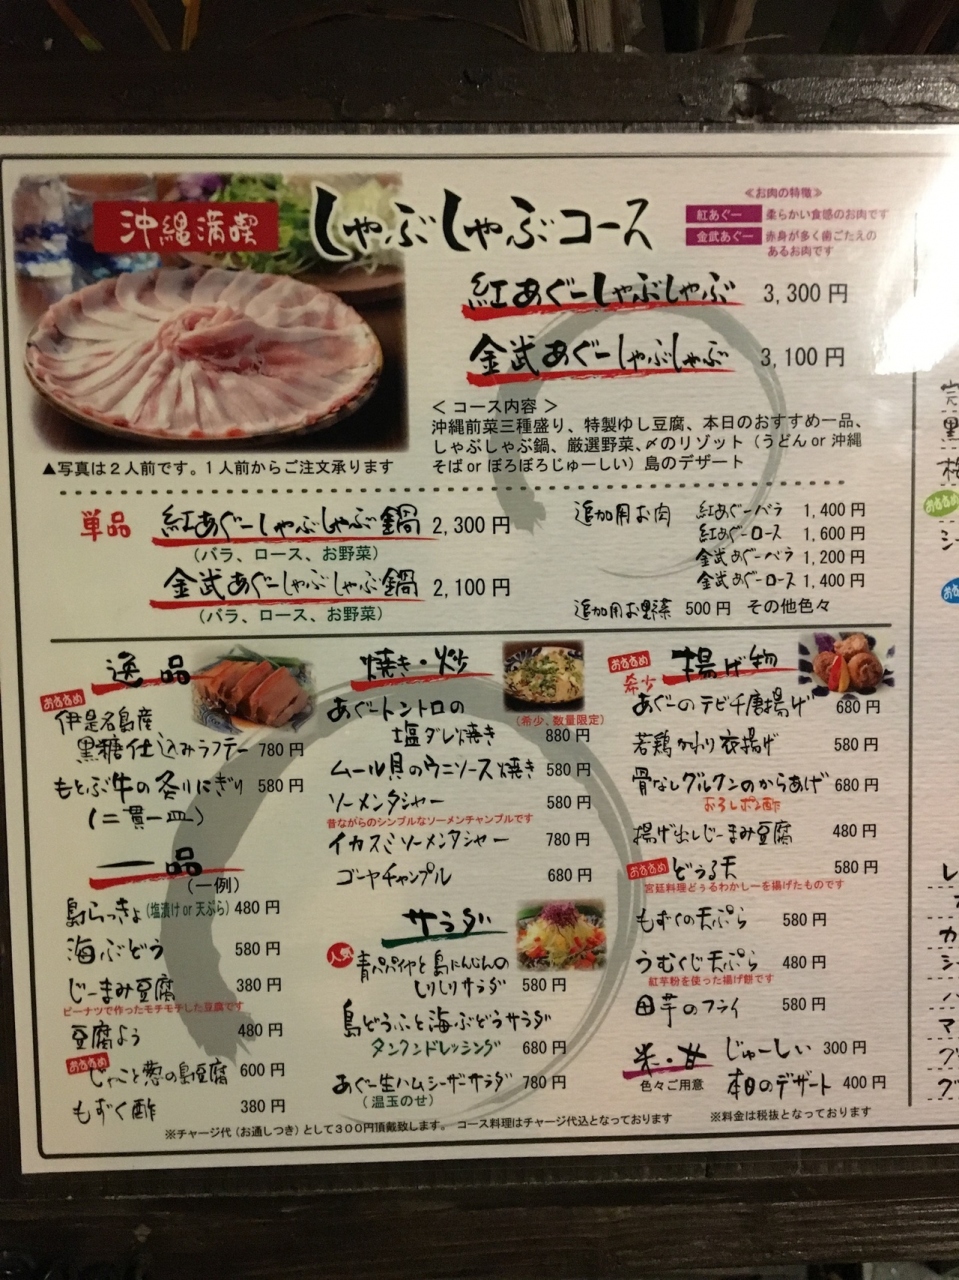 沖縄満喫
しゃぶしゃぶコース
≪お肉の特徴≫
紅あぐー 柔らかい食感のお肉です
金武あぐー 赤身が多く歯ごたえの
あるお肉です
紅あぐーしゃぶしゃぶ 3,300円
金武あぐーしゃぶしゃぶ 3,100円
＜コース内容＞
沖縄前菜三種盛り、特製ゆし豆腐、本日のおすすめ一品、
しゃぶしゃぶ鍋、厳選野菜、〆のリゾット（うどん or 沖縄
そば or ぼろぼろじゅーしい）島のデザート
▲写真は２人前です。１人前からご注文承ります
単品 紅あぐーしゃぶしゃぶ鍋 2,300円
（バラ、ロース、お野菜）
金武あぐーしゃぶしゃぶ鍋 2,100円
（バラ、ロース、お野菜）
追加用お肉 紅あぐーバラ 1,400円
紅あぐーロース 1,600円
金武あぐーバラ 1,200円
金武あぐーロース 1,400円
追加用お野菜 500円 その他色々
逸品
おすすめ
伊是名島産
黒糖仕込みラフテー 780円
もとぶ牛の炙りにぎり 580円
（二貫一皿）
一品
（一例）
島らっきょ（塩漬け or 天ぷら） 480円
海ぶどう 580円
じーまみ豆腐 380円
ピーナツで作ったモチモチした豆腐です
豆腐よう 480円
おすすめ
じゃこと葱の島豆腐 600円
もずく酢 380円
焼き・炒
あぐートントロの
塩ダレ焼き
（希少、数量限定）
880円
ムール貝のウニソース焼き 580円
ソーメンタシャー 580円
昔ながらのシンプルなソーメンチャンプルです
イカスミソーメンタシャー 780円
ゴーヤチャンプル 680円
サラダ
人気 青パパイヤと島にんじんの
しりしりサラダ 580円
島どうふと海ぶどうサラダ
タンカンドレッシング 680円
あぐー生ハムシーザーサラダ 780円
（温玉のせ）
おすすめ 揚げ物
希少
あぐーのテビチ唐揚げ 680円
若鶏かわり衣揚げ 580円
骨なしグルクンのからあげ 680円
おろしポン酢
揚げ出しじーまみ豆腐 480円
おすすめ どぅる天 580円
宮廷料理どぅるわかしーを揚げたものです
もずくの天ぷら 580円
うむくじ天ぷら 480円
紅芋粉を使った揚げ餅です
田芋のフライ 580円
米・甘 じゅーしぃ 300円
色々ご用意 本日のデザート 400円
※チャージ代（お通しつき）として３００円頂戴致します。 コース料理はチャージ代込となっております ※料金は税抜となっております
おすすめ